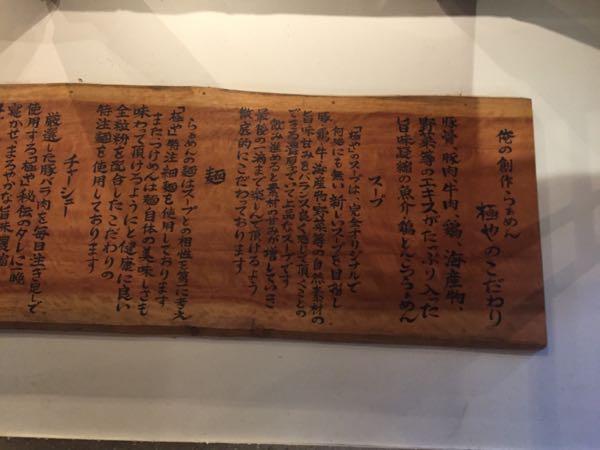 俺の創作らぁめん
極やのこだわり
豚骨、豚肉牛肉、鶏、海産物、
野菜等のエキスがたっぷり入った
旨味凝縮の魚介鶏とんこつらぁめん
スープ
「極や」のスープは、完全オリジナルで
何処にも無い新しいスープを目指し
豚、鶏、牛、海産物、野菜等の自然素材の
旨味甘みをバランス良く感じて頂くことの
できる濃厚でいて上品なスープです
飲み進めると素材の甘みが増していき
最後の一滴まで楽しんで頂けるよう
徹底的にこだわっております
麺
らぁめんの麺はスープとの相性を第一に考え
「極や」特注細麺を使用しております
またつけめんは麺自体の美味しさも
味わって頂けるようにと健康に良い
全粒粉を配合したこだわりの
特注麺を使用しております
チャーシュー
厳選した豚バラ肉を毎日生き醤で
使用する「極や」秘伝のタレに一晩
寝かせ、まろやかな旨味